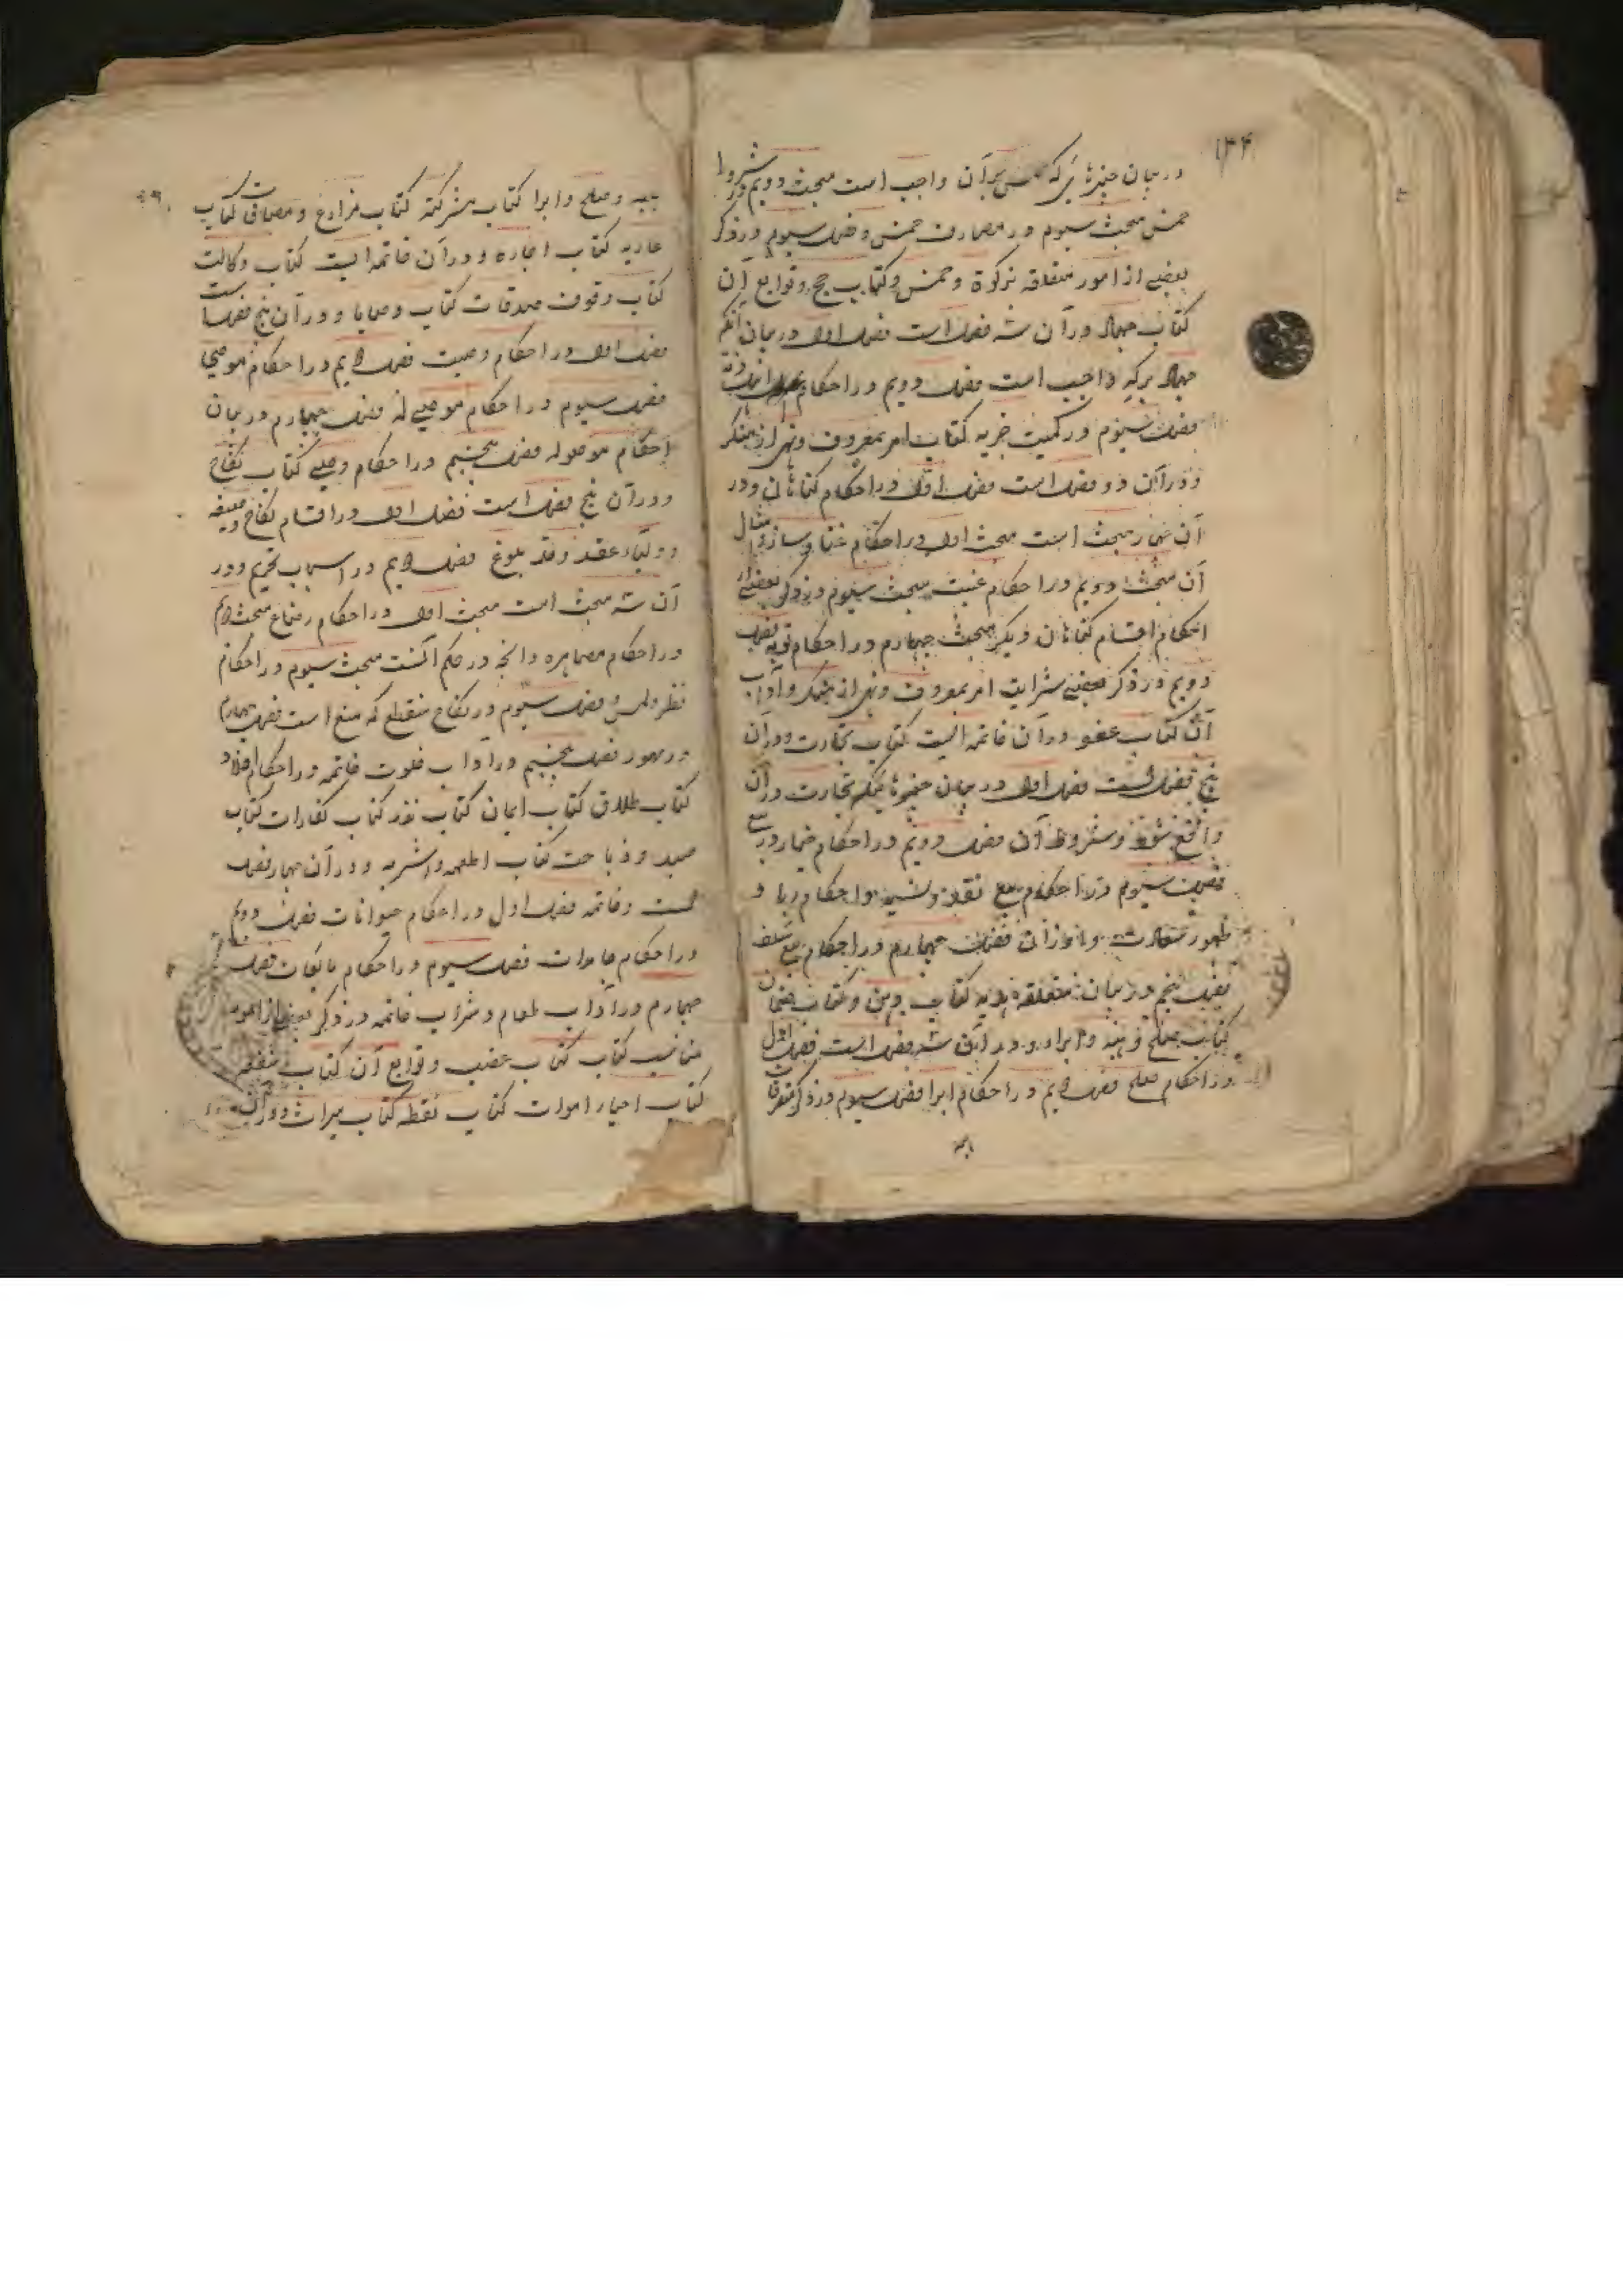 ۱۳۴
در بیان چیزهایی که خمس بر آن واجب است مبحث دویم در شروط
خمس مبحث سیوم در مصارف خمس و فصل سیوم در ذکر
بعضی از امور متعلقه بزکوة و خمس و کتاب حج و توابع آن
کتاب جهاد و در آن سه فصل است فصل اول در بیان آنکه
جهاد بر که واجب است فصل دویم در احکام
فصل سیوم در کمیت جزیه کتاب امر بمعروف و نهی از منکر
و در آن دو فصل است فصل اول در احکام گناهان و در
آن چهار مبحث است مبحث اول در احکام غنا و ساز و امثال
آن مبحث دویم در احکام غیبت مبحث سیوم در ذکر بعضی از
احکام اقسام گناهان دیگر مبحث چهارم در احکام توبه فصل
دویم در ذکر بعضی شرایط امر بمعروف و نهی از منکر و آداب
آن کتاب عفو و در آن خاتمه ایست کتاب تجارت و در آن
پنج فصل است فصل اول در بیان چیزهائیکه تجارت در آن
واقع شود و شروط آن فصل دویم در احکام خیار در بیع
فصل سیوم در احکام بیع نقد و نسیه و احکام ربا و
ظهور فصل چهارم در احکام بیع سلف
فصل پنجم در بیان متعلقه کتاب دین و کتاب ضمان
کتاب صلح و هبه و ابراء و در آن سه فصل است فصل اول
در احکام صلح فصل دویم در احکام ابرا فصل سیوم در ذکر متفرقات
بهبه
بهبه و صلح و ابرا کتاب شرکت کتاب مزارع و مساقات کتاب
عاریه کتاب اجاره و در آن خاتمه ایست کتاب وکالت
کتاب وقوف صدقات کتاب وصایا و در آن پنج فصل است
فصل اول در احکام وصیت فصل دویم در احکام موصی
فصل سیوم در احکام موصی له فصل چهارم در بیان
احکام موصی به فصل پنجم در احکام وصی کتاب نکاح
و در آن پنج فصل است فصل اول در اقسام نکاح و صیغه
و اولیاء عقد و حد بلوغ فصل دویم در اسباب تحریم و در
آن سه مبحث است مبحث اول در احکام رضاع مبحث دویم
در احکام مصاهره و آنچه در حکم آنست مبحث سیوم در احکام
نظر و لمس و فصل سیوم در نکاح منقطع که متعه است فصل چهارم
در مهور فصل پنجم در آداب خلوت خاتمه در احکام اولاد
کتاب طلاق کتاب ایمان کتاب نذر کتاب کفارات کتاب
صید و ذباحت کتاب اطعمه و اشربه و در آن چهار فصل
است و خاتمه فصل اول در احکام حیوانات فصل دویم
در احکام جامدات فصل سیوم در احکام مایعات فصل
چهارم در آداب طعام و شراب خاتمه در ذکر بعضی از امور
مناسب کتاب کتاب غصب و توابع آن کتاب شفعه
کتاب احیاء اموات کتاب لقطه کتاب میراث و در آن